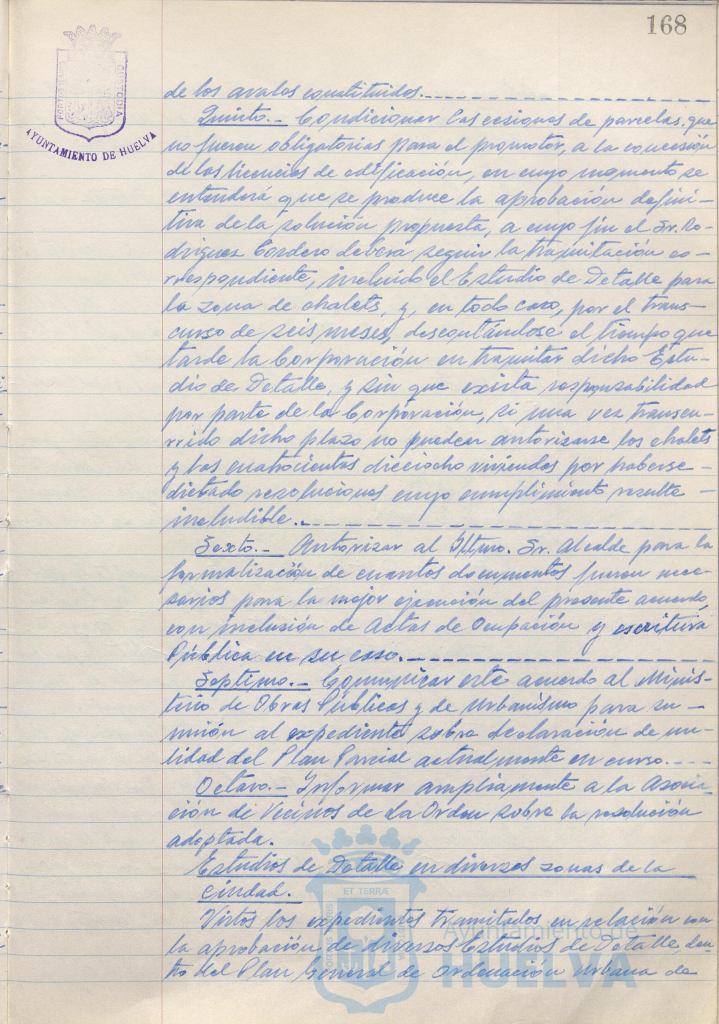 168
PORTUS MARIS ET TERRAE CUSTODIA
AYUNTAMIENTO DE HUELVA
de los avales constituidos.
Quinto.- Condicionar las cesiones de parcelas, que
no fueren obligatorias para el promotor, a la concesión
de las licencias de edificación, en cuyo momento se
entenderá que se produce la aprobación defini-
tiva de la solución propuesta, a cuyo fin el Sr. Ro-
driguez Cordero deberá seguir la tramitación co-
rrespondiente, incluido el Estudio de Detalle para
la zona de chalets, y, en todo caso, por el trans-
curso de seis meses, descontándose el tiempo que
tarde la Corporación en tramitar dicho Estu-
dio de Detalle, y sin que exista responsabilidad
por parte de la Corporación, si una vez transcu-
rrido dicho plazo no puedan autorizarse los chalets
y las cuatrocientas dieciocho viviendas por haberse
dictado resoluciones cuyo cumplimiento resulte
ineludible.
Sexto.- Autorizar al Iltmo. Sr. Alcalde para la
formalización de cuantos documentos fueren nece-
sarios para la mejor ejecución del presente acuerdo,
con inclusión de Actas de Ocupación y escritura
Pública en su caso.
Septimo.- Comunicar este acuerdo al Minis-
terio de Obras Públicas y de Urbanismo para su
unión al expediente sobre declaración de nu-
lidad del Plan Parcial actualmente en curso.
Octavo.- Informar ampliamente a la Asocia-
ción de Vecinos de La Orden sobre la resolución
adoptada.
Estudios de Detalle en diversas zonas de la
Ciudad.
Vistos los expedientes tramitados en relación con
la aprobación de diversos Estudios de Detalle den-
tro del Plan General de Ordenación Urbana de
ET TERRAE
Ayuntamiento de
HUELVA